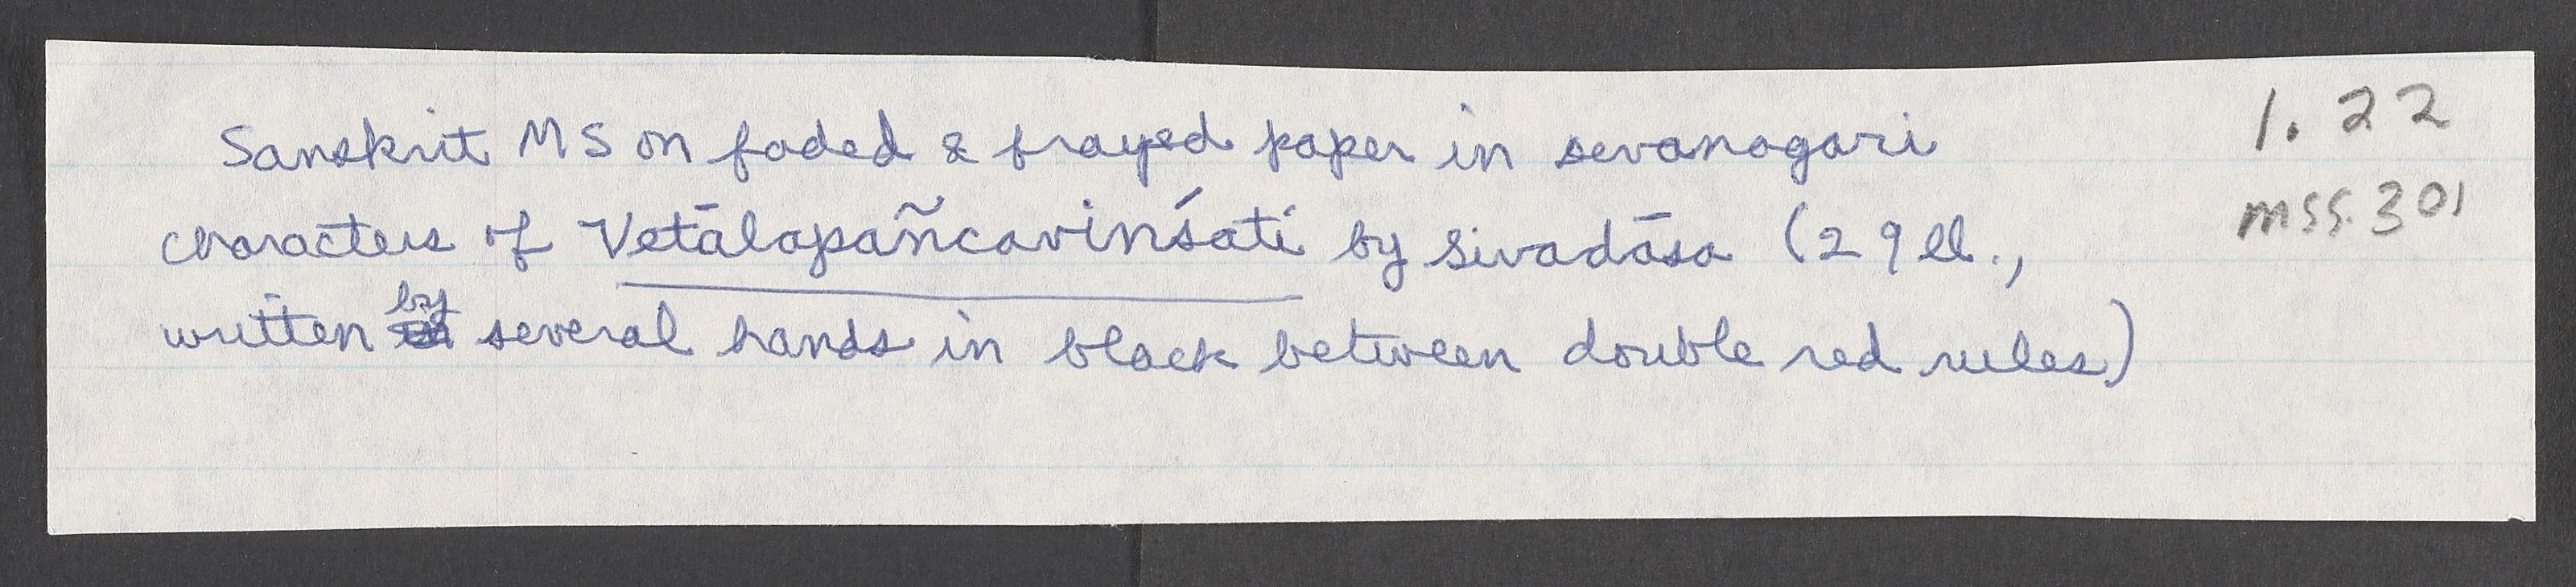 Sanskrit MS on faded & frayed paper in sevanagari
characters of Vetālapañcavinśati by Sivadāsa (29 ll.,
written by several hands in black between double red rules)
1.22
mss. 301